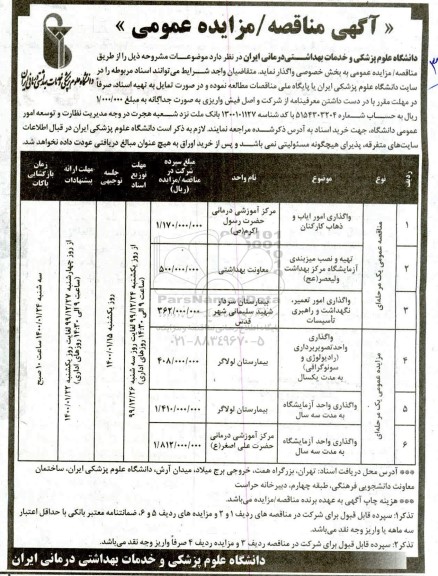 « آگهی مناقصه/مزایده عمومی »
دانشگاه علوم پزشکی و خدمات بهداشتی درمانی ایران
دانشگاه علوم پزشکی و خدمات بهداشتی‌درمانی ایران در نظر دارد موضوعات مشروحه ذیل را از طریق
مناقصه/ مزایده عمومی به بخش خصوصی واگذار نماید. متقاضیان واجد شرایط می‌توانند اسناد مربوطه را در
سایت دانشگاه علوم پزشکی ایران یا پایگاه ملی مناقصات مطالعه نموده و در صورت تمایل به تهیه اسناد، صرفاً
در مهلت مقرر با در دست داشتن معرفینامه از شرکت و اصل فیش واریزی به صورت جداگانه به مبلغ ۱/۰۰۰/۰۰۰
ریال به حساب شماره ۵۱۵۴۳۰۲۲۰۴ با کد شناسه ۱۳۰۰۱۰۱۱۲۷ بانک ملت نزد شعبه هجرت در وجه مدیریت نظارت و توسعه امور
عمومی دانشگاه، جهت خرید اسناد به آدرس ذکرشده مراجعه نمایند. لازم به ذکر است دانشگاه علوم پزشکی ایران در قبال اطلاعات
سایت‌های متفرقه، پذیرای هیچگونه مسئولیتی نمی باشد و پس از خرید اوراق به هیچ عنوان مبالغ دریافتی عودت داده نخواهد شد.
ردیف
نوع
موضوع
نام واحد
مبلغ سپرده شرکت در مناقصه/مزایده (ریال)
مهلت توزیع اسناد
جلسه توجیهی
مهلت ارائه پیشنهادات
زمان بازگشایی پاکات
مناقصه عمومی یک مرحله‌ای
۱
واگذاری امور ایاب و ذهاب کارکنان
مرکز آموزشی درمانی حضرت رسول اکرم(ص)
۱/۱۷۰/۰۰۰/۰۰۰
۲
تهیه و نصب میزبندی آزمایشگاه مرکز بهداشت ولیعصر(عج)
معاونت بهداشتی
۵۰۰/۰۰۰/۰۰۰
۳
واگذاری امور تعمیر، نگهداشت و راهبری تأسیسات
بیمارستان سردار شهید سلیمانی شهر قدس
۳۶۲/۰۰۰/۰۰۰
مزایده عمومی یک مرحله‌ای
۴
واگذاری واحد تصویربرداری (رادیولوژی و سونوگرافی) به مدت یکسال
بیمارستان لولاگر
۴۰۸/۰۰۰/۰۰۰
۵
واگذاری واحد آزمایشگاه به مدت سه سال
بیمارستان لولاگر
۱/۴۱۰/۰۰۰/۰۰۰
۶
واگذاری واحد آزمایشگاه به مدت سه سال
مرکز آموزشی درمانی حضرت علی اصغر(ع)
۱/۸۱۲/۰۰۰/۰۰۰
از روز یکشنبه ۹۹/۱۲/۲۴ لغایت روز سه شنبه ۹۹/۱۲/۲۶
(ساعت ۹ الی ۱۴:۳۰ روزهای اداری)
روز یکشنبه ۱۴۰۰/۰۱/۱۵
از روز چهارشنبه ۹۹/۱۲/۲۷ لغایت روز یکشنبه ۱۴۰۰/۰۱/۲۲
(ساعت ۹ الی ۱۴:۳۰ روزهای اداری)
سه شنبه ۱۴۰۰/۰۱/۲۴ ساعت ۱۰ صبح
ParsNamadData
۰۲۱-۸۸۳۴۹۶۷۰-۵
*** آدرس محل دریافت اسناد: تهران، بزرگراه همت، خروجی برج میلاد، میدان آرش، دانشگاه علوم پزشکی ایران، ساختمان
معاونت دانشجویی فرهنگی، طبقه چهارم، دبیرخانه حراست
*** هزینه چاپ آگهی به عهده برنده مناقصه/مزایده می‌باشد.
تذکر۱: سپرده قابل قبول برای شرکت در مناقصه های ردیف ۱ و ۲ و مزایده های ردیف ۵ و ۶، ضمانتنامه معتبر بانکی با حداقل اعتبار
سه ماهه یا واریز وجه نقد می‌باشد.
تذکر۲: سپرده قابل قبول برای شرکت در مناقصه ردیف ۳ و مزایده ردیف ۴ صرفاً واریز وجه نقد می‌باشد.
دانشگاه علوم پزشکی و خدمات بهداشتی درمانی ایران